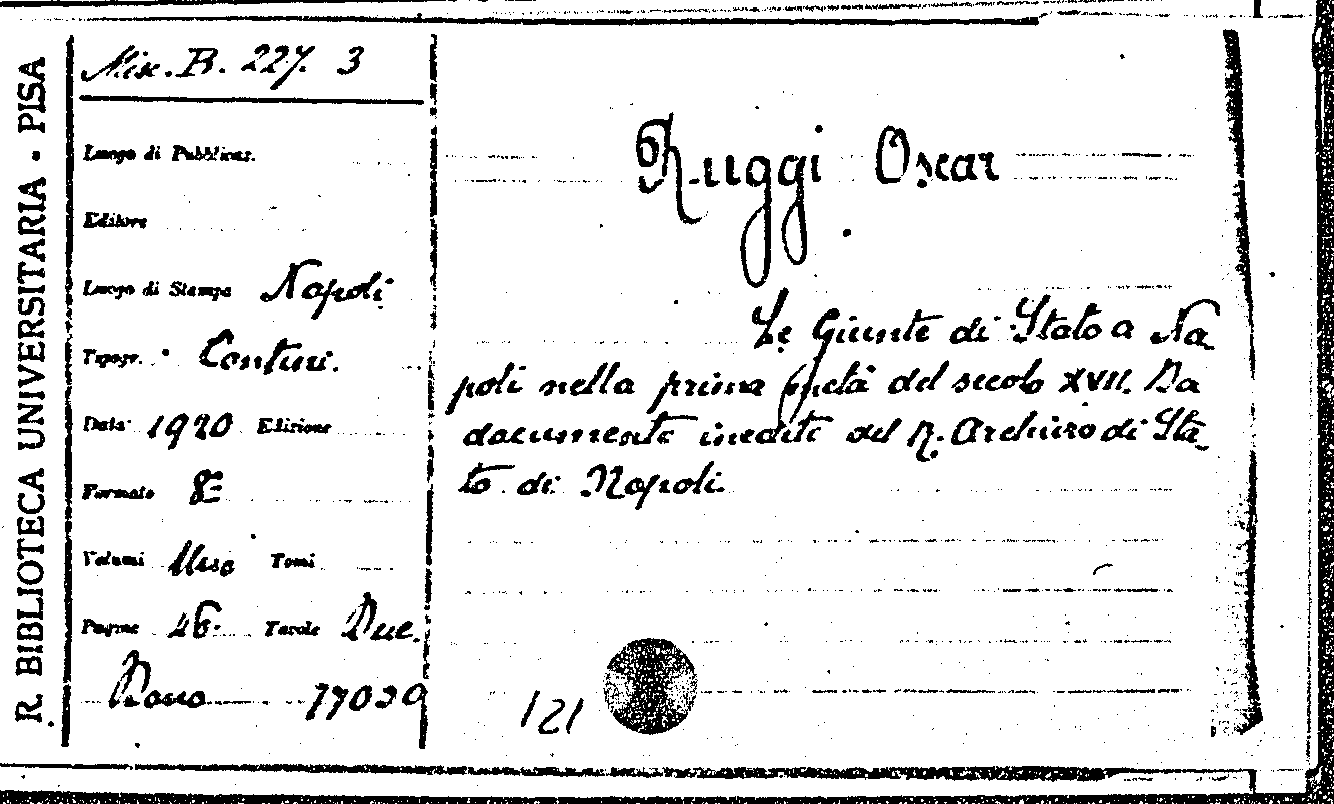 R. BIBLIOTECA UNIVERSITARIA - PISA
Misc. B. 227. 3
Luogo di Pubblicaz.
Editore
Luogo di Stampa Napoli
Tipogr. Contini.
Data 1920 Edizione
Formato 8º
Volumi Uno Tomi
Pagine 46. Tavole Due.
Dono 77039
Ruggi Oscar
Le Giunte di Stato a Na
poli nella prima metà del secolo XVII. Da
documenti inediti del R. Archivio di Sta
to di Napoli.
121